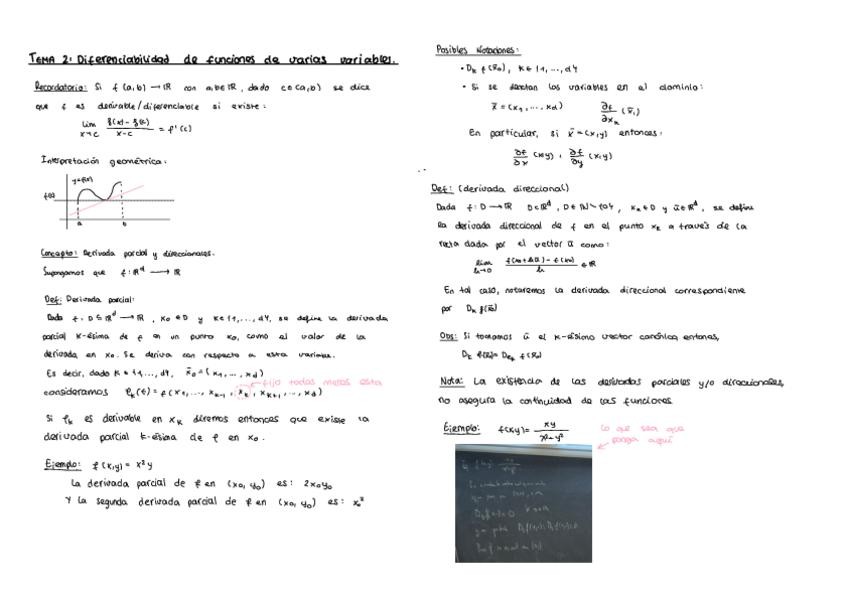 TEMA 2: Diferenciabilidad de funciones de varias variables.
Recordatorio: Si f (a,b) → ℝ con a,b∈ℝ, dado c∈(a,b) se dice
que f es derivable/diferenciable si existe:
lim x→c f(x)-f(c) / x-c = f'(c)
Interpretación geométrica:
y=f(x)
f(c)
a b
Concepto: Derivada parcial y direccionales.
Supongamos que f: ℝᵈ → ℝ
Def: Derivada parcial:
Dada f: D ⊆ ℝᵈ → ℝ, x₀ ∈ D y k∈{1,...,d}, se define la derivada
parcial k-ésima de f en un punto x₀, como el valor de la
derivada en x₀. Se deriva con respecto a esta variable.
Es decir, dado k∈{1,...,d}, x̄₀=(x₁,...,x_d)
fijo todas menos esta
consideramos φₖ(t)=f(x₁,...,xₖ₋₁, xₖ, xₖ₊₁,...,x_d)
Si φₖ es derivable en xₖ diremos entonces que existe la
derivada parcial k-ésima de f en x₀.
Ejemplo: f(x,y) = x²y
La derivada parcial de f en (x₀, y₀) es: 2x₀y₀
Y la segunda derivada parcial de f en (x₀, y₀) es: x₀²
Posibles Notaciones:
• Dₖ f(x̄₀), k∈{1,...,d}
• Si se denotan las variables en el dominio:
x̄=(x₁,...,x_d) ∂f/∂xₖ (x̄₁)
En particular, si x̄=(x,y) entonces:
∂f/∂x (x,y), ∂f/∂y (x,y)
Def: (derivada direccional)
Dada f: D → ℝ D⊆ℝᵈ, D∈ℕ∖{0}, x₀∈D y ū∈ℝᵈ, se define
la derivada direccional de f en el punto x₀ a través de la
recta dada por el vector ū como:
lim h→0 f(x₀+hū)-f(x₀) / h ∈ℝ
En tal caso, notaremos la derivada direccional correspondiente
por
Obs: Si tomamos ū el k-ésimo vector canónico, entonces,
Nota: La existencia de las derivadas parciales y/o direccionales,
no asegura la continuidad de las funciones.
Ejemplo: f(x,y)= xy / x²-y²
Lo que sea que
ponga aquí